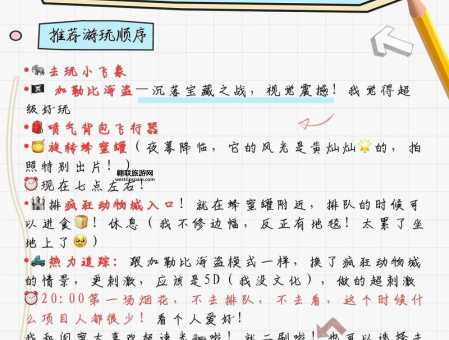 推荐游玩顺序
•🐘去玩小飞象
•🏴‍☠️ 加勒比海盗—沉落宝藏之战，视觉震撼！我觉得超
级好玩
•🎒喷气背包飞行器
•🍯旋转蜂蜜罐（夜幕降临，它的风光是黄灿灿🌟的，拍
照特别出片！）
翱联旅游网
⏰现在七点左右！
•🎡排疯狂动物城入口！就在蜂蜜罐附近，排队的时候可
以进食🍞！休息（我不修边幅，反正有地毯！太累了坐
地上了🥹）
•🚓热力追踪：跟加勒比海盗模式一样，换了疯狂动物城
的情景，更刺激，应该是5D（我没文化），做的超刺激
⏰20:00第一场烟花，不去排队，不去看，这个时候什
么项目人都很少！看个人爱好！